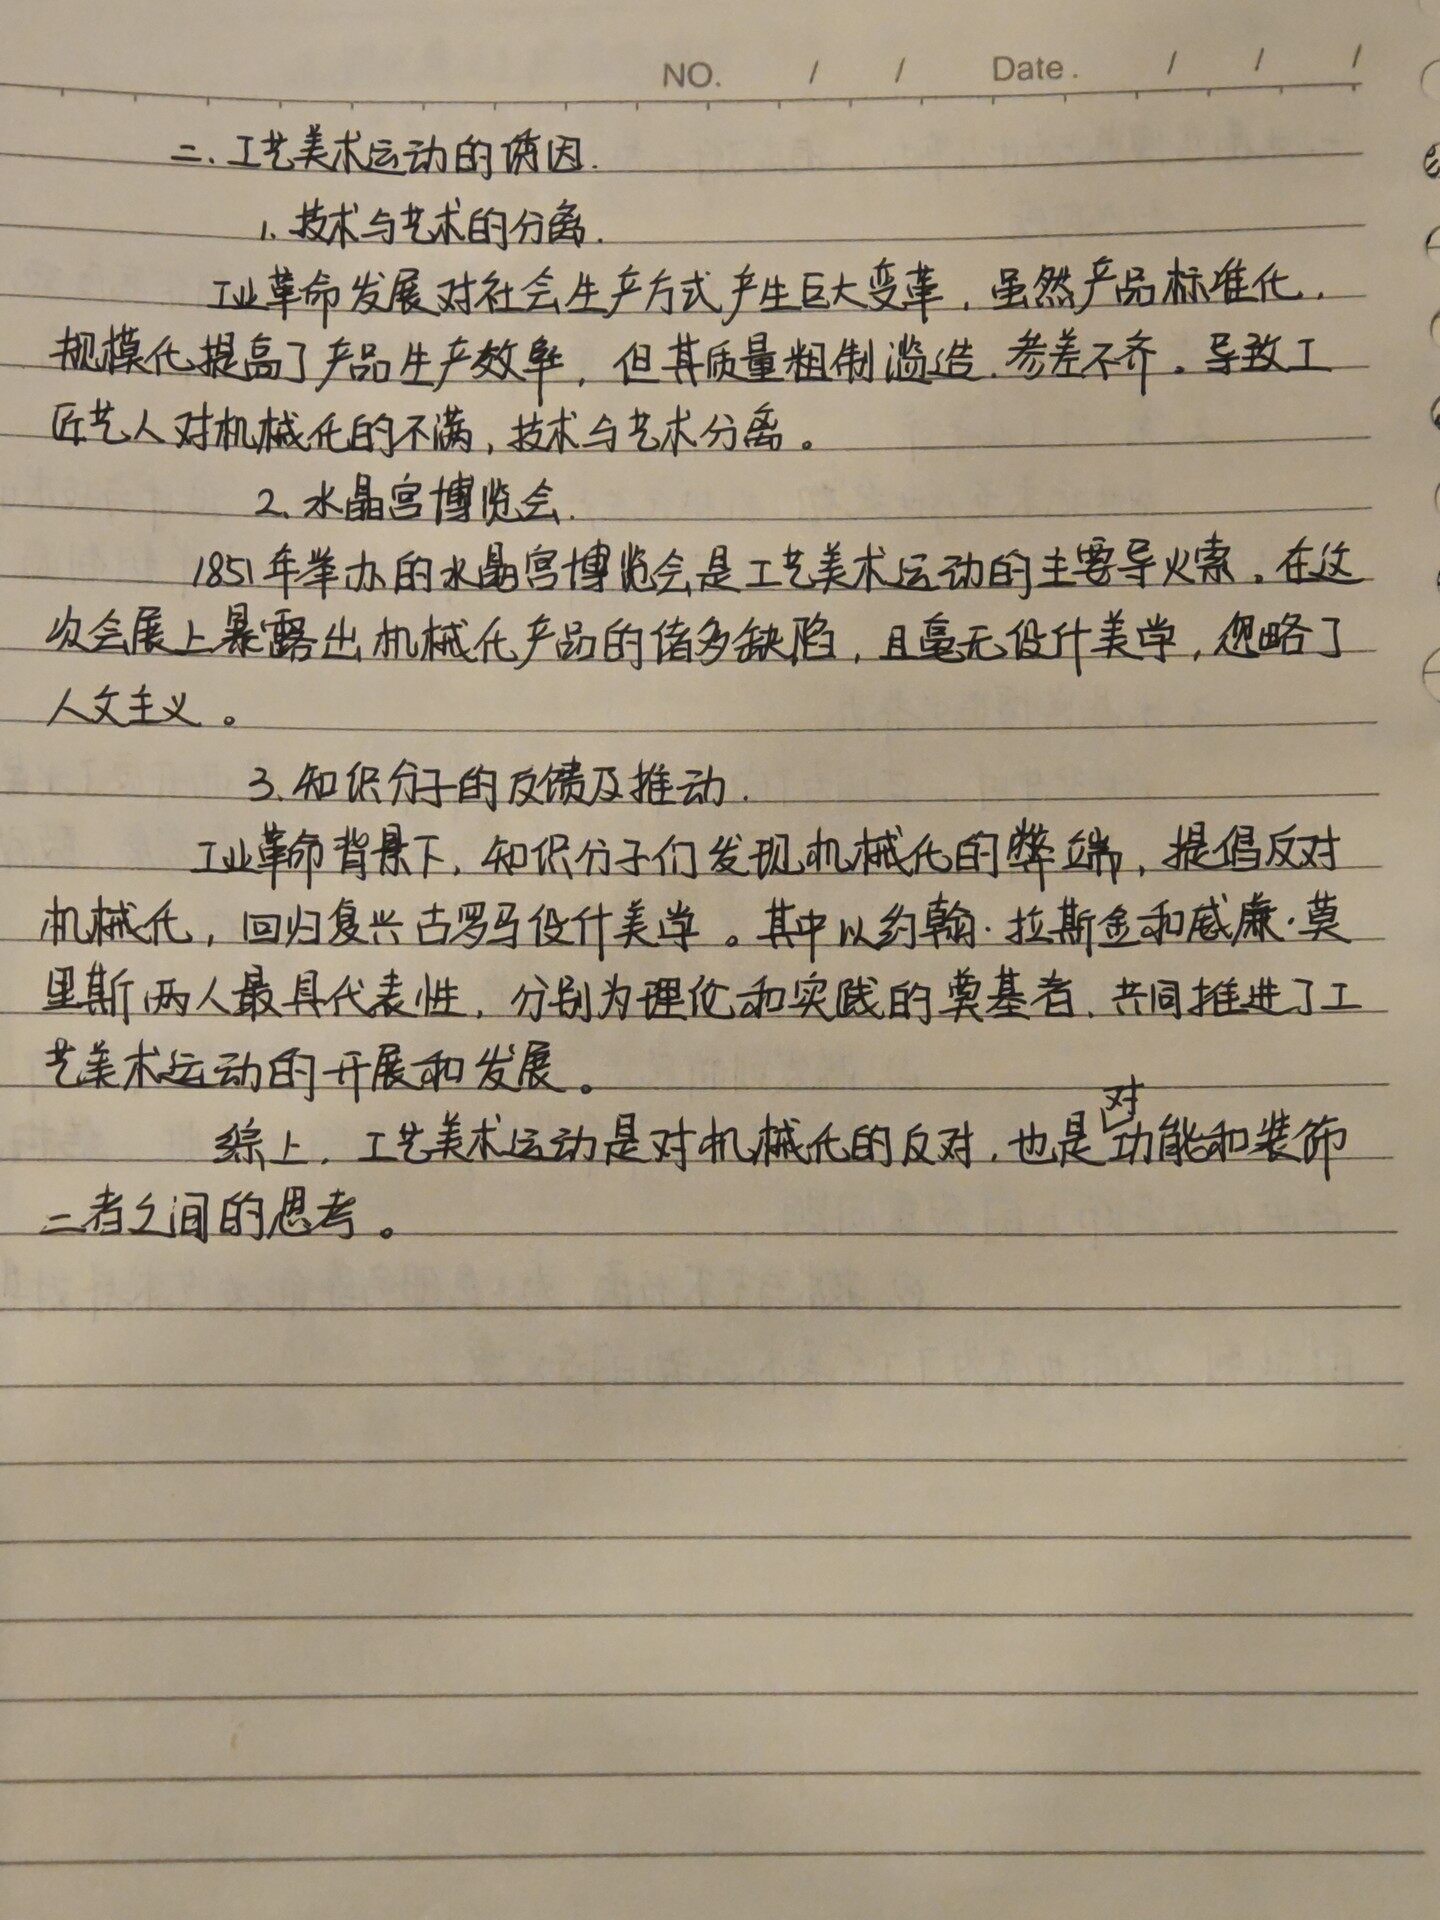 NO. / / Date. / / /
二、工艺美术运动的诱因.
1、技术与艺术的分离.
工业革命发展对社会生产方式产生巨大变革，虽然产品标准化、
规模化提高了产品生产效率，但其质量粗制滥造、参差不齐。导致工
匠艺人对机械化的不满，技术与艺术分离。
2、水晶宫博览会.
1851年举办的水晶宫博览会是工艺美术运动的主要导火索。在这
次会展上暴露出机械化产品的诸多缺陷，且毫无设计美学，忽略了
人文主义。
3、知识分子的反馈及推动.
工业革命背景下，知识分子们发现机械化的弊端，提倡反对
机械化，回归复兴古罗马设计美学。其中以约翰·拉斯金和威廉·莫
里斯两人最具代表性，分别为理论和实践的奠基者，共同推进了工
艺美术运动的开展和发展。
综上，工艺美术运动是对机械化的反对，也是对功能和装饰
二者之间的思考。